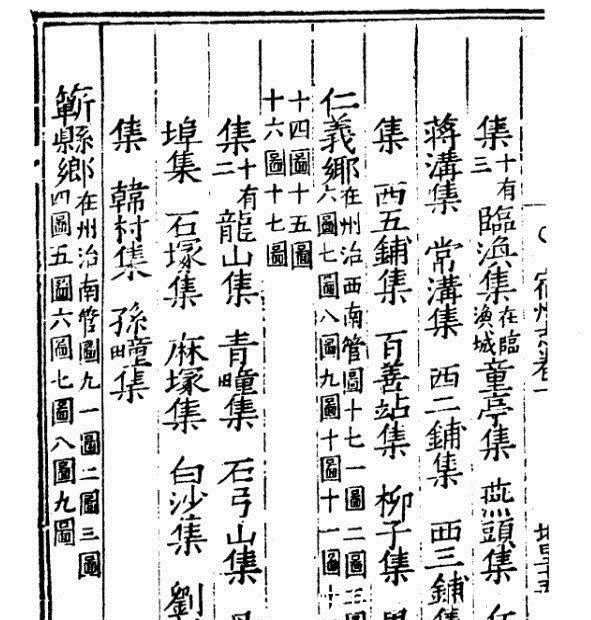 宿州志卷一
集十有三 臨渙集在臨渙城 童亭集 燕頭集
蔣溝集 常溝集 西二鋪集 西三鋪集
集 西五鋪集 百善站集 柳子集
仁義鄉在州治西南管圖十七一圖二圖三
六圖七圖八圖九圖十圖十一圖十
十四圖十五圖
十六圖十七圖
集十有二 龍山集 青疃集 石弓山集
埠集 石塚集 麻塚集 白沙集 劉
集 韓村集 孫疃集
蘄縣鄉在州治南管圖九一圖二圖三圖
四圖五圖六圖七圖八圖九圖